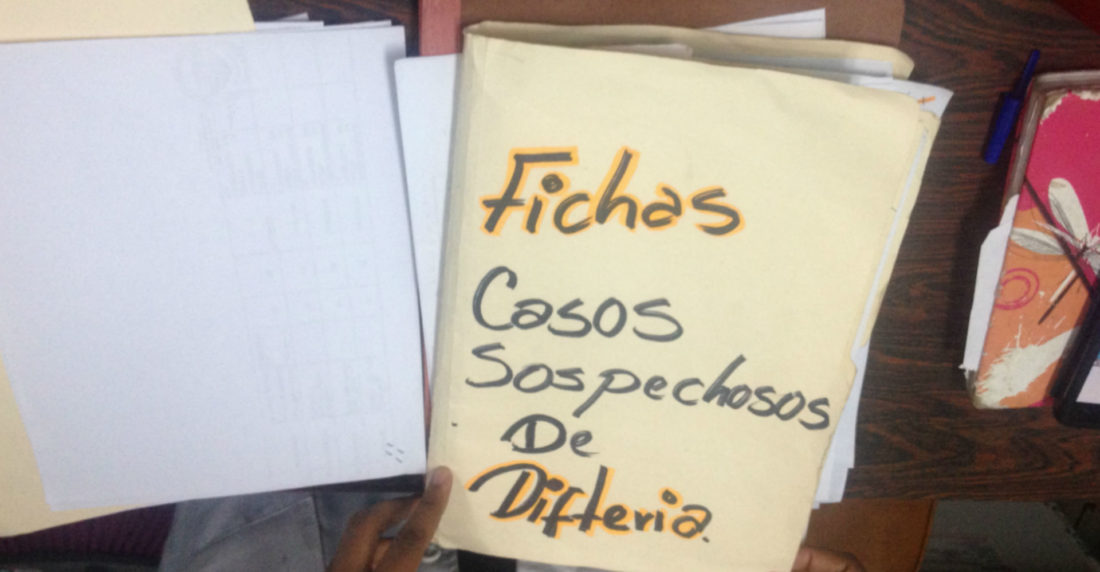 Fichas
Casos
Sospechosos
De
Difteria.